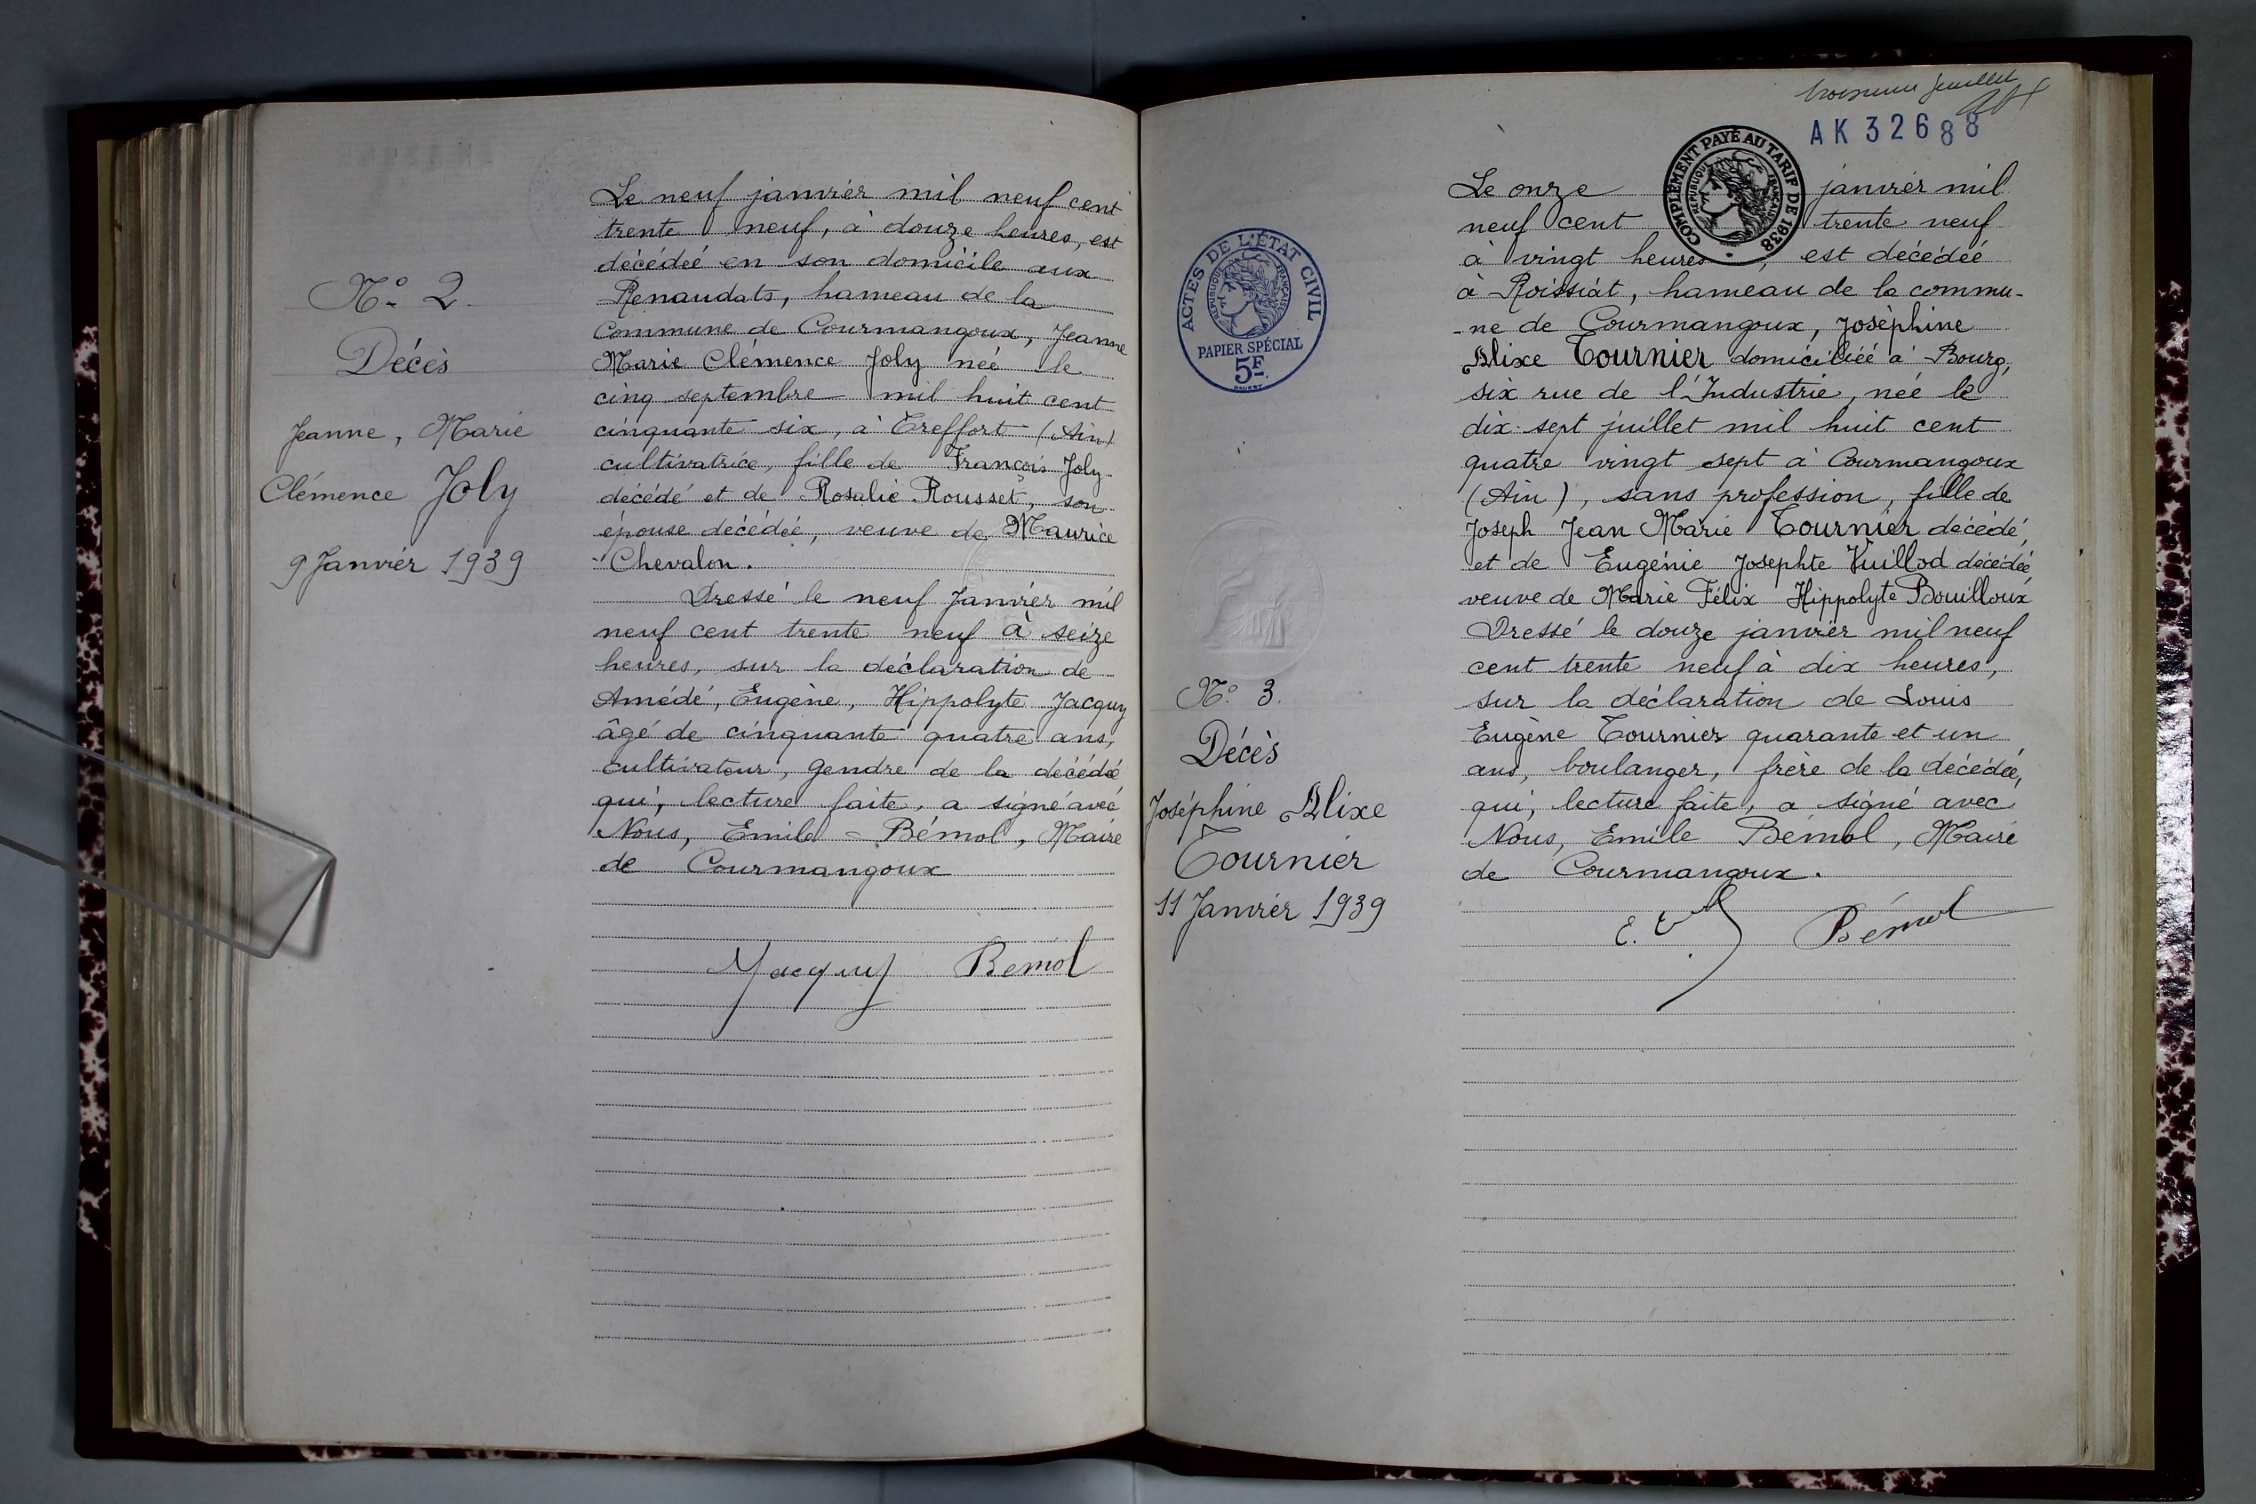 N° 2
Décès
Jeanne, Marie
Clémence Joly
9 Janvier 1939
Le neuf janvier mil neuf cent
trente neuf, à douze heures, est
décédée en son domicile aux
Renaudats, hameau de la
Commune de Courmangoux, Jeanne
Marie Clémence Joly née le
cinq septembre mil huit cent
cinquante six, à Treffort (Ain)
cultivatrice, fille de François Joly
décédé et de Rosalie Rousset, son
épouse décédée, veuve de Maurice
Chevalon.
Dressé le neuf Janvier mil
neuf cent trente neuf à seize
heures, sur la déclaration de
Amédé, Eugène, Hippolyte Jacquy
âgé de cinquante quatre ans,
cultivateur, gendre de la décédée
qui, lecture faite, a signé avec
Nous, Emile Bémol, Maire
de Courmangoux
Jacquy Bemol
troisième feuillet
AK 32688
COMPLÉMENT PAYÉ AU TARIF DE 1938
RÉPUBLIQUE FRANÇAISE
ACTES DE L'ÉTAT CIVIL
RÉPUBLIQUE FRANÇAISE
PAPIER SPÉCIAL
5F
N° 3.
Décès
Joséphine Alixe
Tournier
11 Janvier 1939
Le onze janvier mil
neuf cent trente neuf
à vingt heures, est décédée
à Roissiat, hameau de la commu-
-ne de Courmangoux, Joséphine
Alixe Tournier domiciliée à Bourg,
six rue de l'Industrie, née le
dix-sept juillet mil huit cent
quatre vingt sept à Courmangoux
(Ain), sans profession, fille de
Joseph Jean Marie Tournier décédé,
et de Eugénie Josephte Vuillod décédée
veuve de Marie Félix Hippolyte Bouilloux
Dressé le douze janvier mil neuf
cent trente neuf à dix heures,
sur la déclaration de Louis
Eugène Tournier quarante et un
ans, boulanger, frère de la décédée,
qui, lecture faite, a signé avec
Nous, Emile Bémol, Maire
de Courmangoux.
Bémol